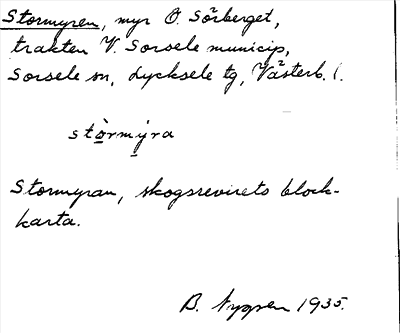 Stormyren, myr Ö. Sörberget,
trakten V. Sorsele municip,
Sorsele sn, Lycksele tg, Västerb. l.
stòrmýra
Stormyran, skogsrevirets block-
karta.
B. 1935.